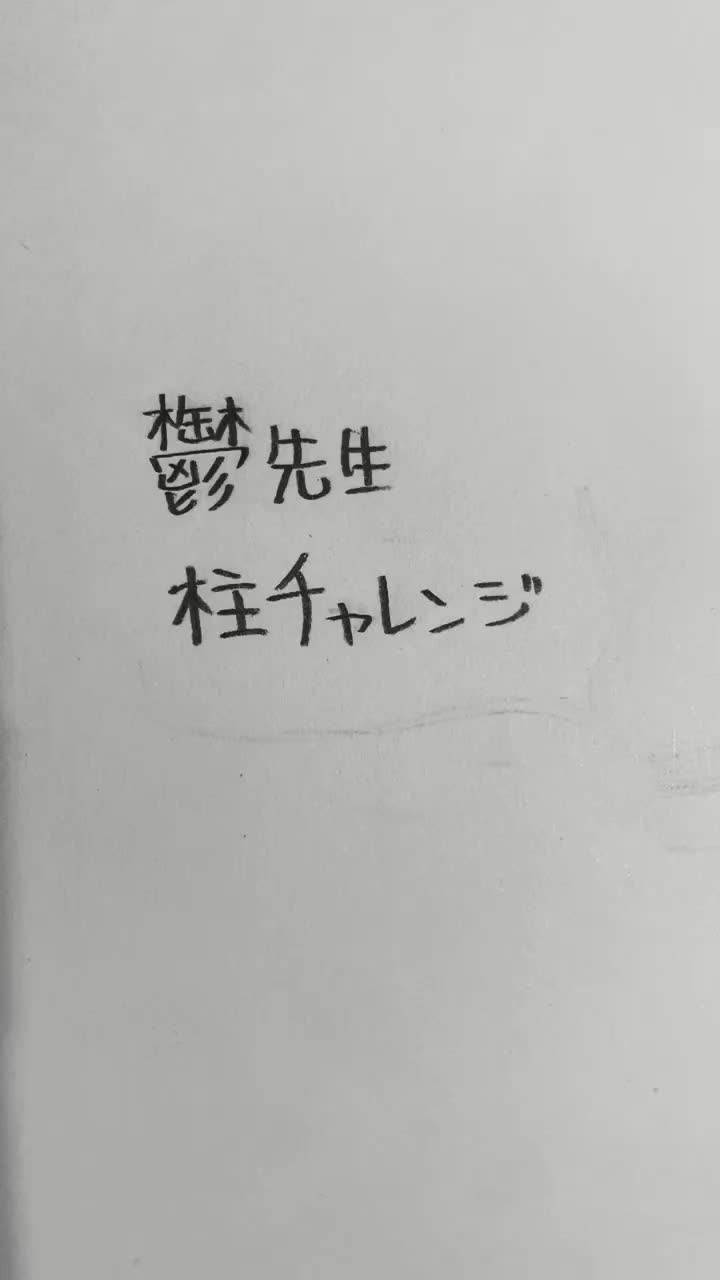 鬱先生
柱チャレンジ